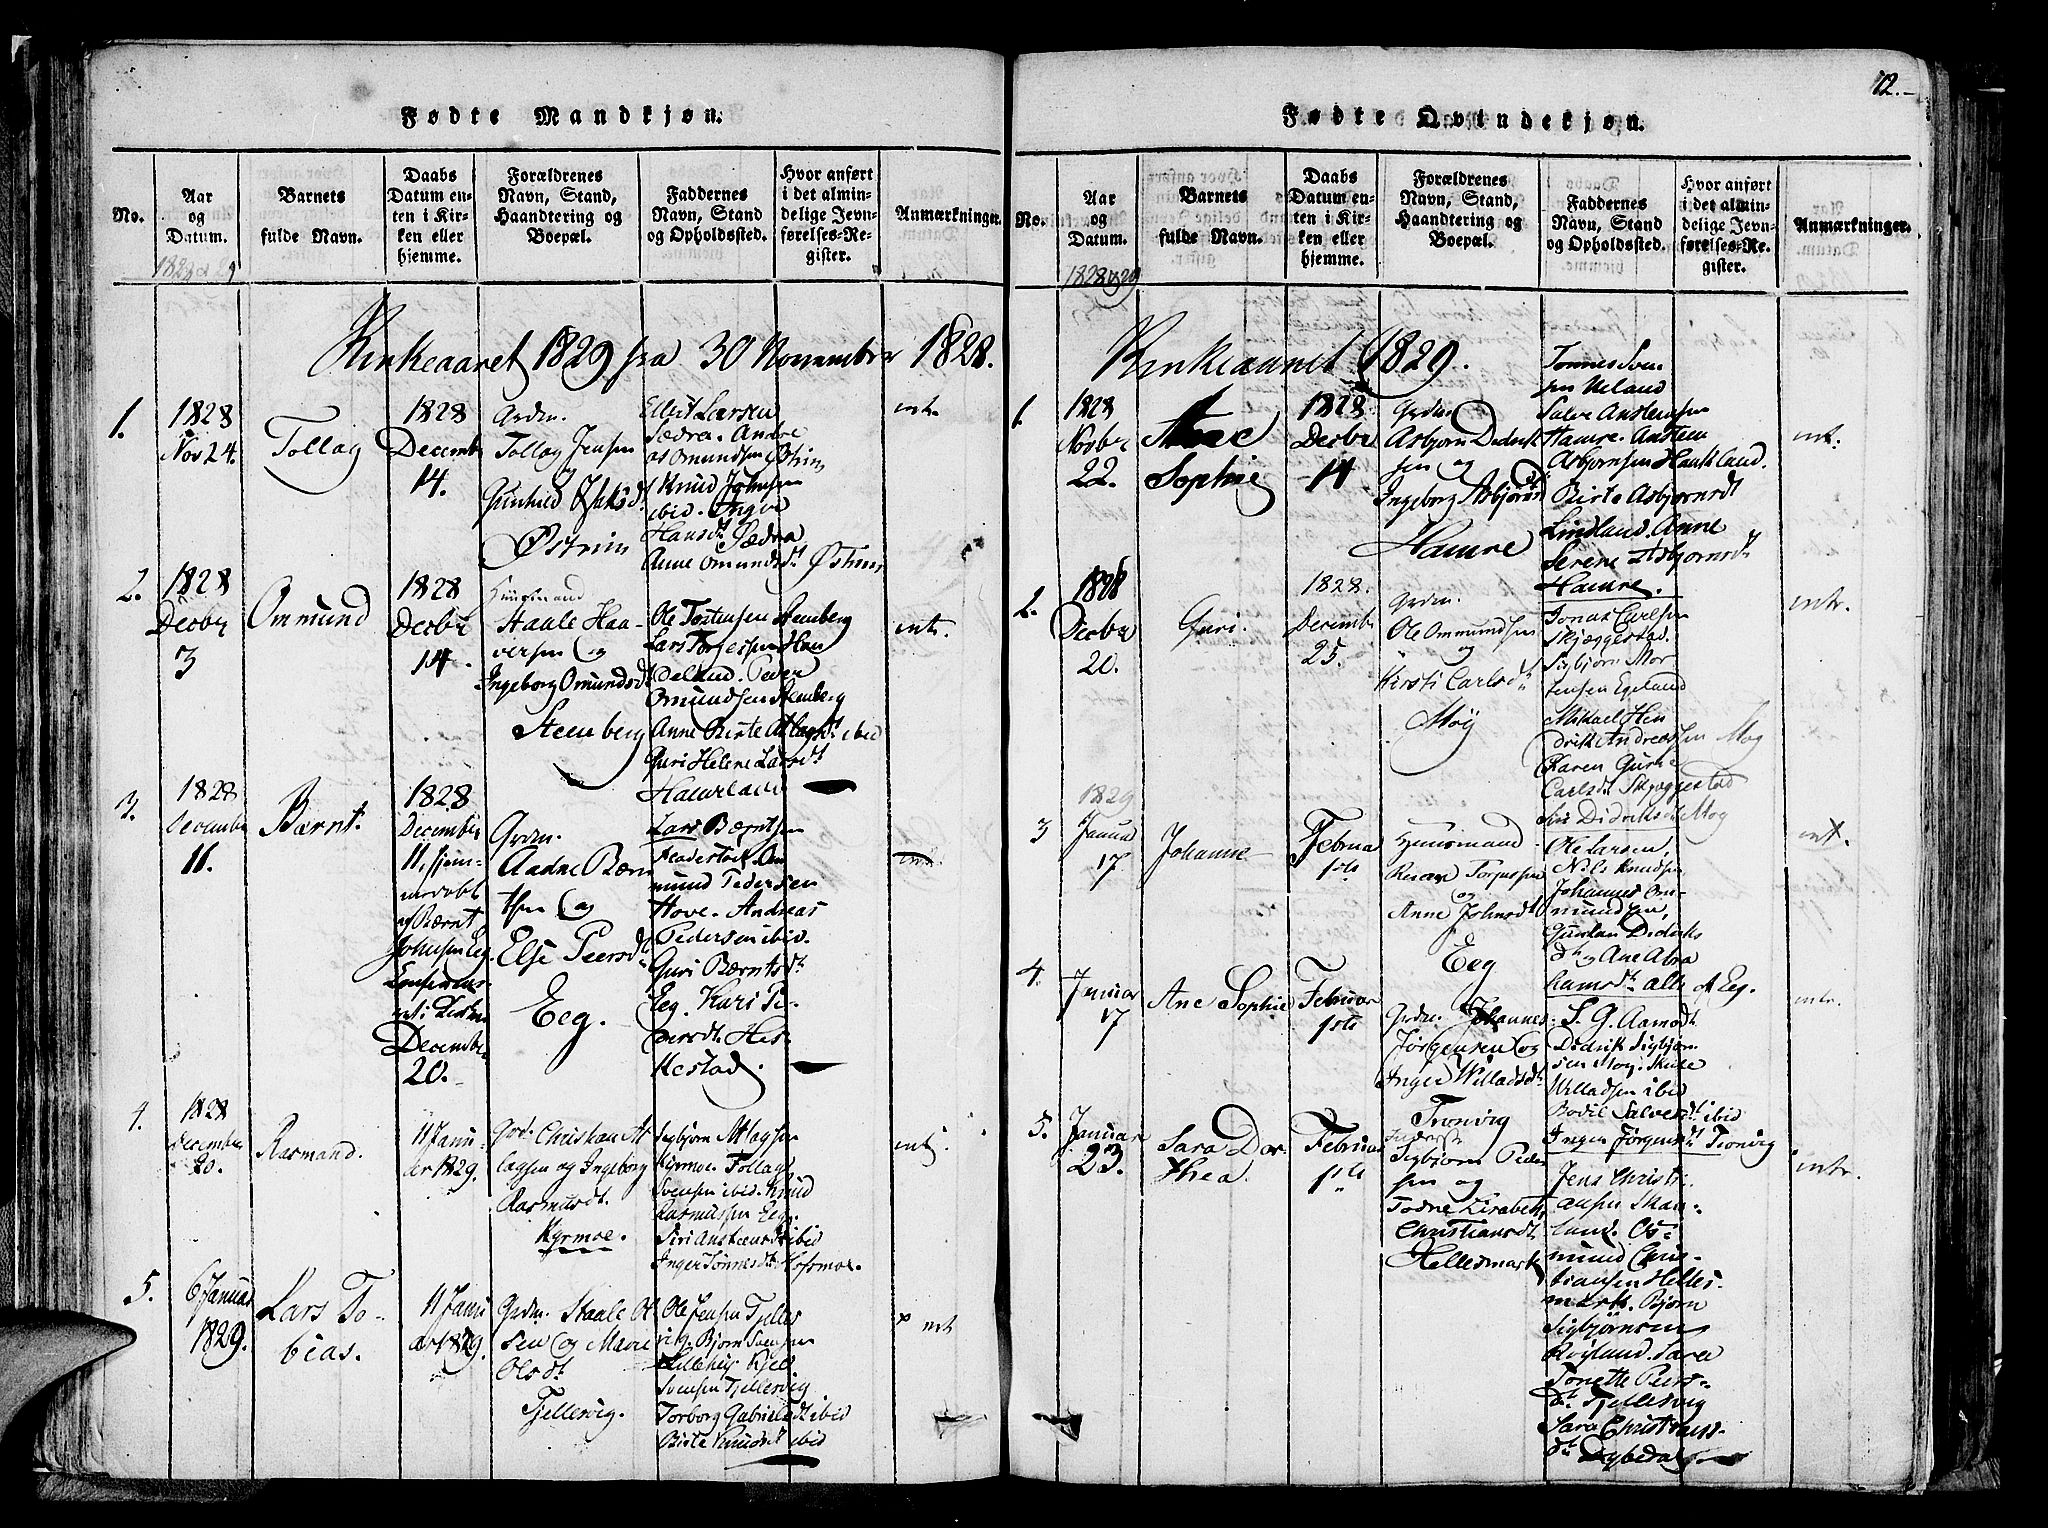 12.
Fødte Mandkjøn.
No.
Aar
og
Datum.
Barnets
fulde Navn.
Daabs
Datum en-
ten i Kir-
ken eller
hjemme.
Forældrenes
Navn, Stand,
Haandtering og
Boepæl.
Faddernes
Navn, Stand
og Opholdssted.
Hvor anført
i det almin-
delige Jevn-
førelses-Re-
gister.
Anmærkninger.
Kirkeaaret 1829 fra 30 November 1828.
1.
1828
Nov 24.
Tollag
1828
Decemb
14.
Grdm.
Tollag Jensen
og
Gunhild Isaksd.
Østrim
Ellert Larsen
Sædra. Andre
as Omundsen Østrim
Knud Johnsen
ibid. Ingve
Hansd. Sædra
Anne Omundsdt Østrim
int.
2.
1828
Decbr
3
Ommund
1828
Decbr
14.
Huusmand
Staale Haa-
versen og
Ingeborg Omundsdt
Steenberg
Ole Tostensen Stenberg
Lars Torgessen Hau
deland. Peder
Omundsen Stenberg
Anne Birte Atlagsdt ibid
Guri Helene Larsdt
int.
3.
1828
December
11.
Bærnt.
1828
December
11, hjem-
medøbt
af Bærnt
Johnsen Eeg.
December
20.
Grdm.
Aadne Bærn
tsen og
Else Peersdt
Eeg.
Lars Bærntsen
Om
mund Pedersen
Hove. Andreas
Pedersen ibid.
Guri Bærntsdt
Eeg. Kari Pe-
dersdt Hes-
kestad.
int.
4.
1828
December
20.
Rasmand.
11 Janu-
ar 1829.
Grdm. Christian At
lagsen og Ingeborg
Rasmusdt.
Kyrmoe.
Sigbjørn Atlagsen
Kyrmoe. Tollag
Svensen ibid. Knud
Rasmussen Eeg.
Siri Anstensdt ibid
Inger Tønnesdt Hofsmoe.
int.
5.
6 Januar
1829.
Lars To-
bias.
11 Janu
ar 1829.
Grdm. Staale Ol
sen og Marie
Olsdt
Tjellesvig.
Ole Jensen Tjelles
vig. Bjørn Svensen
Lillehei. Kjel
Svensen Tjellesvig
Torborg Gabrielsdt ibid
Birte Knudsdt ibid
int
Fødte Qvindekjøn.
No.
Aar
og
Datum.
1828 og 29
Barnets
fulde Navn.
Daabs
Datum en-
ten i Kir-
ken eller
hjemme.
Forældrenes
Navn, Stand,
Haandtering og
Boepæl.
Faddernes
Navn, Stand
og Opholdssted.
Hvor anført
i det almin-
delige Jevn-
førelses-Re-
gister.
Anmærkninger.
Kirkeaaret 1829.
1.
1828
Novbr
22.
Ane
Sophie
1828.
Decbr
14
Grdm.
Asbjørn Didrik
sen og
Ingeborg Asbjørnsd
Hamre
Tønnes Sven
sen Ueland
Salve Anstensen
Hamre.Ansten
Asbjørnsen Haukland.
Birte Asbjørnsdt
Lindland. Anne
Serene Asbjørnsdt
Hamre.
int.
2.
1828
Decbr
20.
Guri.
1828.
Decemb
25.
Grdm.
Ole Ommundsen
og
Kirsti Carlsdt
Møy
Jonas Carlsen
Skjæggestad.
Sigbjørn Mor
tensen Egeland
Mikael Hen
drik Andreassen Møg
Karen Gurine
Carlsdt Skjeggestad
Siri Didriksdt Møg
intr.
1829
3
Januar
17
Johanne
Februa
1ste
Huusmand
Reiar Torjussen
og
Anne Johnsdt
Eeg
Ole Larsen,
Nils Knudsen
Johannes Om-
mundsen,
Gunlau Didriks
dt og Ane Abra
hamsdt. alle af Eeg.
int.
4.
Januar
17
Ane Sophie
Februar
1ste
Grdm. Johannes
Jørgensen og
Inger Willadsdt
Tronvig
S. G. Aamodt
Didrik Sigbjørn
sen Moy. Skule
Willadsen ibid
Bodil Salvesdt ibid
Inger Jørgensdt Tronvig
intr.
5.
Januar
23.
Sara Dor
thea.
Februar
1ste
Sigbjørn Peder
sen og
Todne Lisabeth
Christiansdt.
Hellesmark
Jens Christi-
ansen Skan-
land. Os-
mund Chris-
tiansen Helles-
mark. Bjørn
Sigbjørnsen
Røyland. Sara
Tonette Peers-
dt Tjellesvig
Sara Christians-
dt Dybedal
intr.